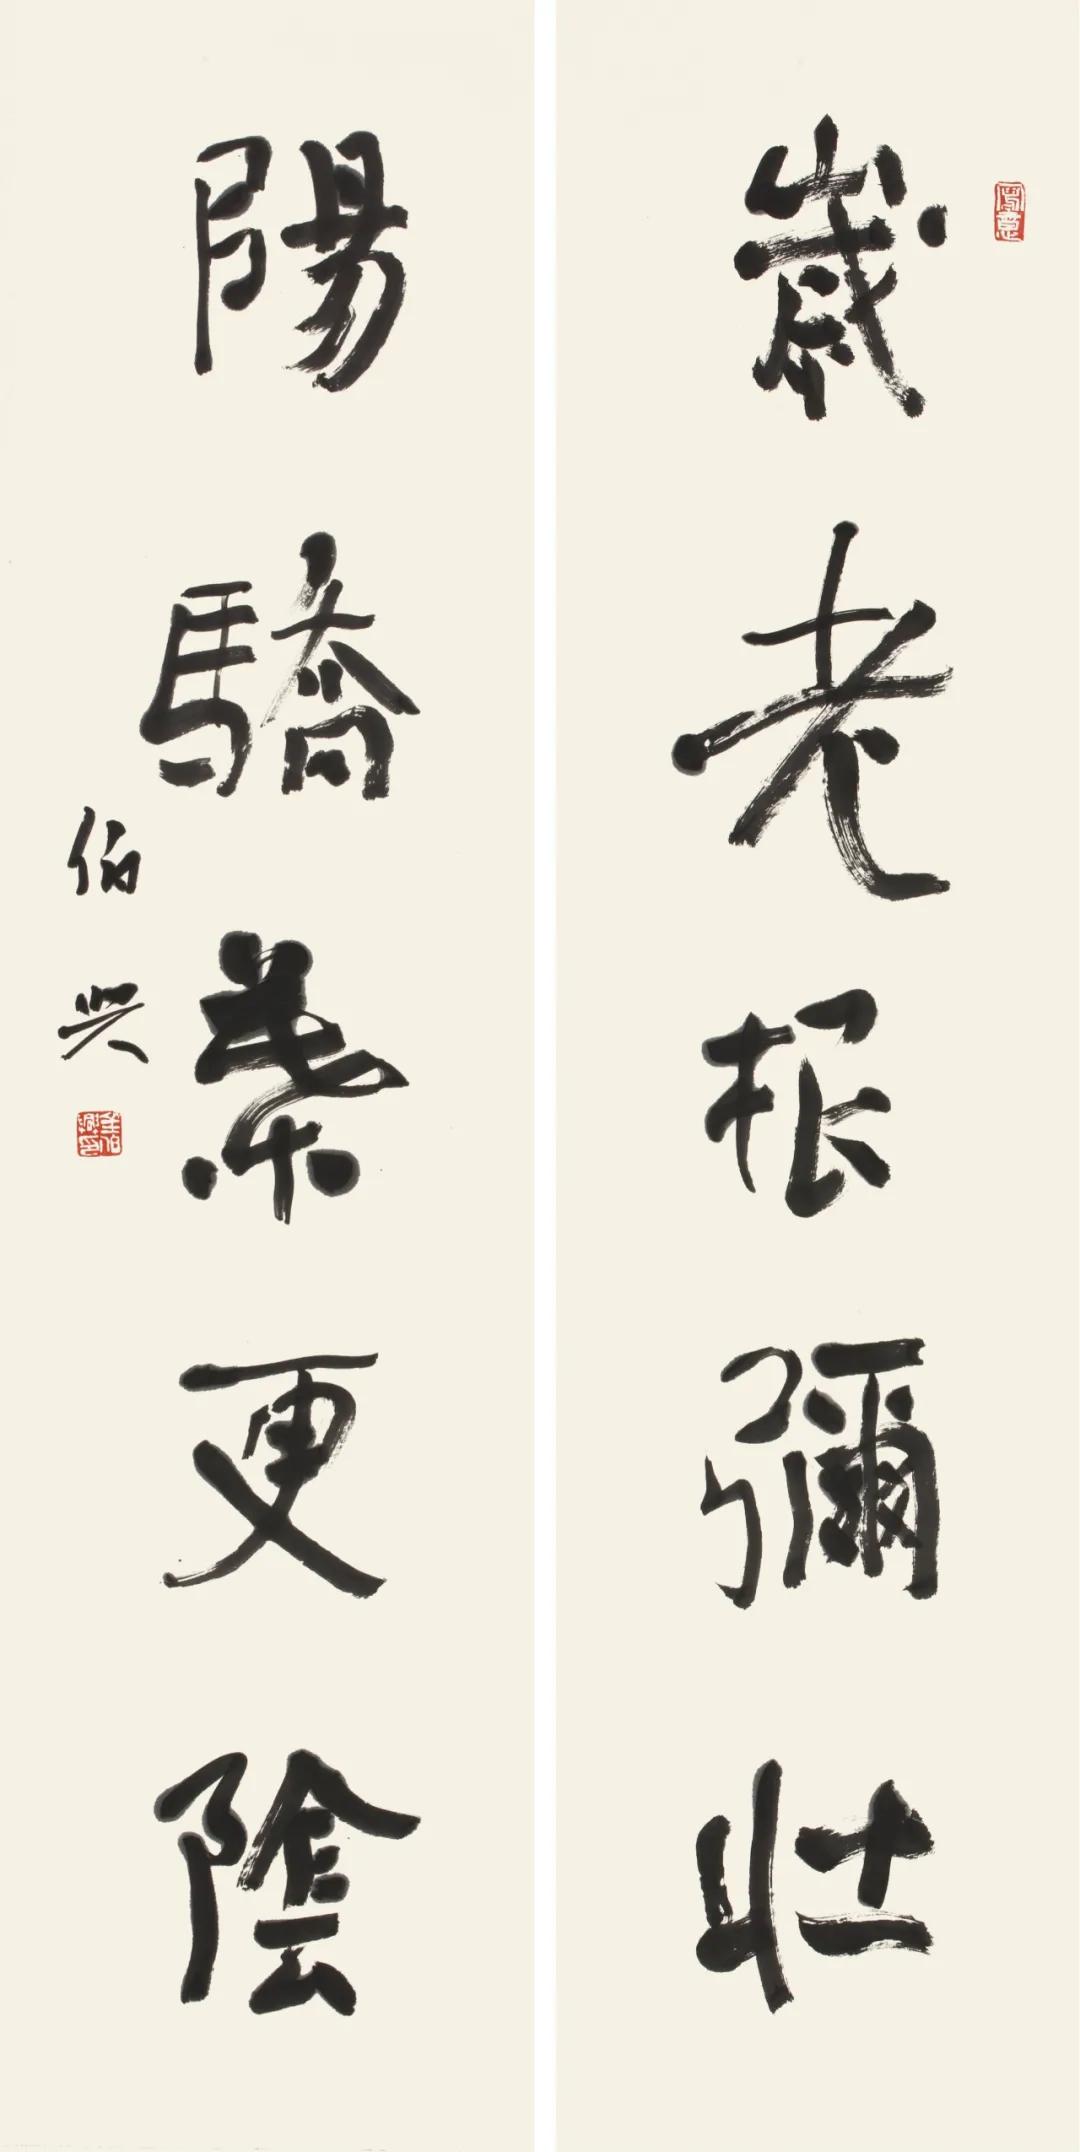 歲老根彌壯
陽驕葉更陰
伯興